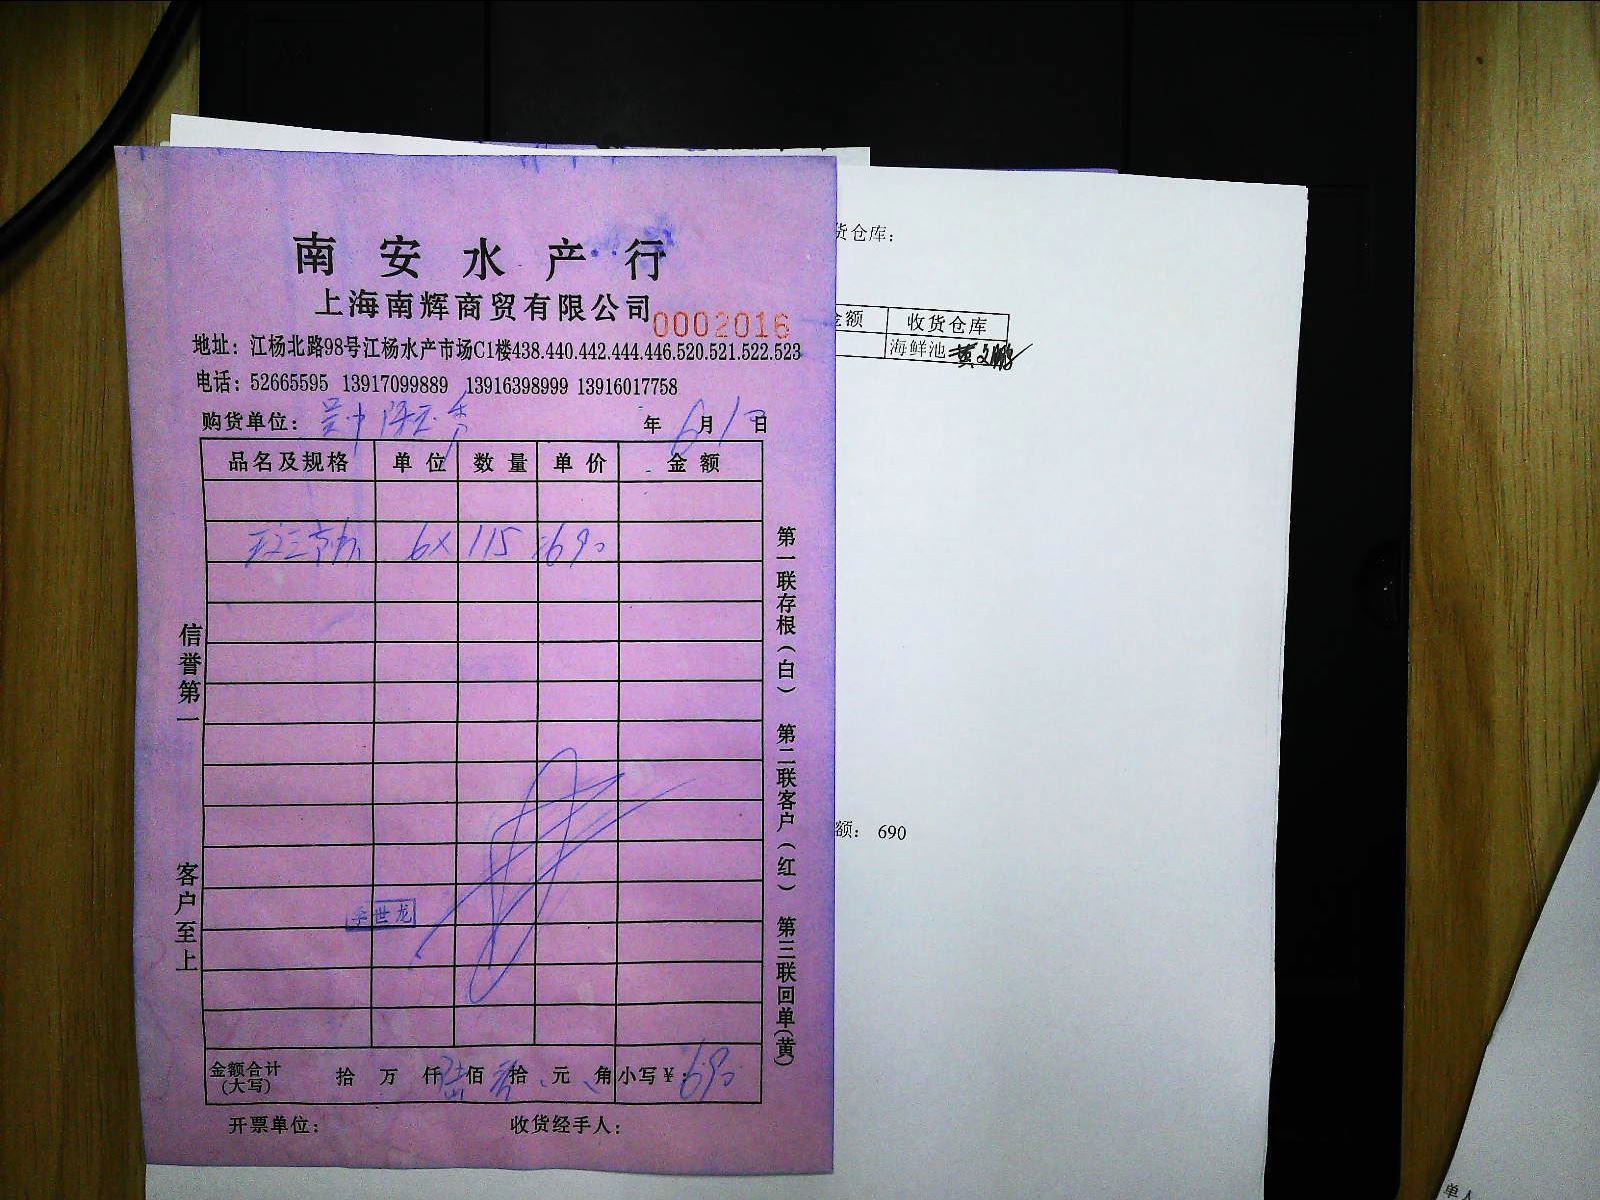 南安水产行
上海南辉商贸有限公司
0002016
地址：江杨北路98号江杨水产市场C1楼438.440.442.444.446.520.521.522.523
电话：52665595 13917099889 13916398999 13916017758
购货单位：吴中
年6月1日
品名及规格 单位 数量 单价 金额
6× 115 =690
信誉第一
客户至上
第一联存根(白) 第二联客户(红) 第三联回单(黄)
李世龙
金额合计(大写) 拾 万 仟 陆 佰 玖 拾 元 角 小写¥：690
开票单位： 收货经手人：
货仓库：
金额 收货仓库
海鲜池
额：690
单